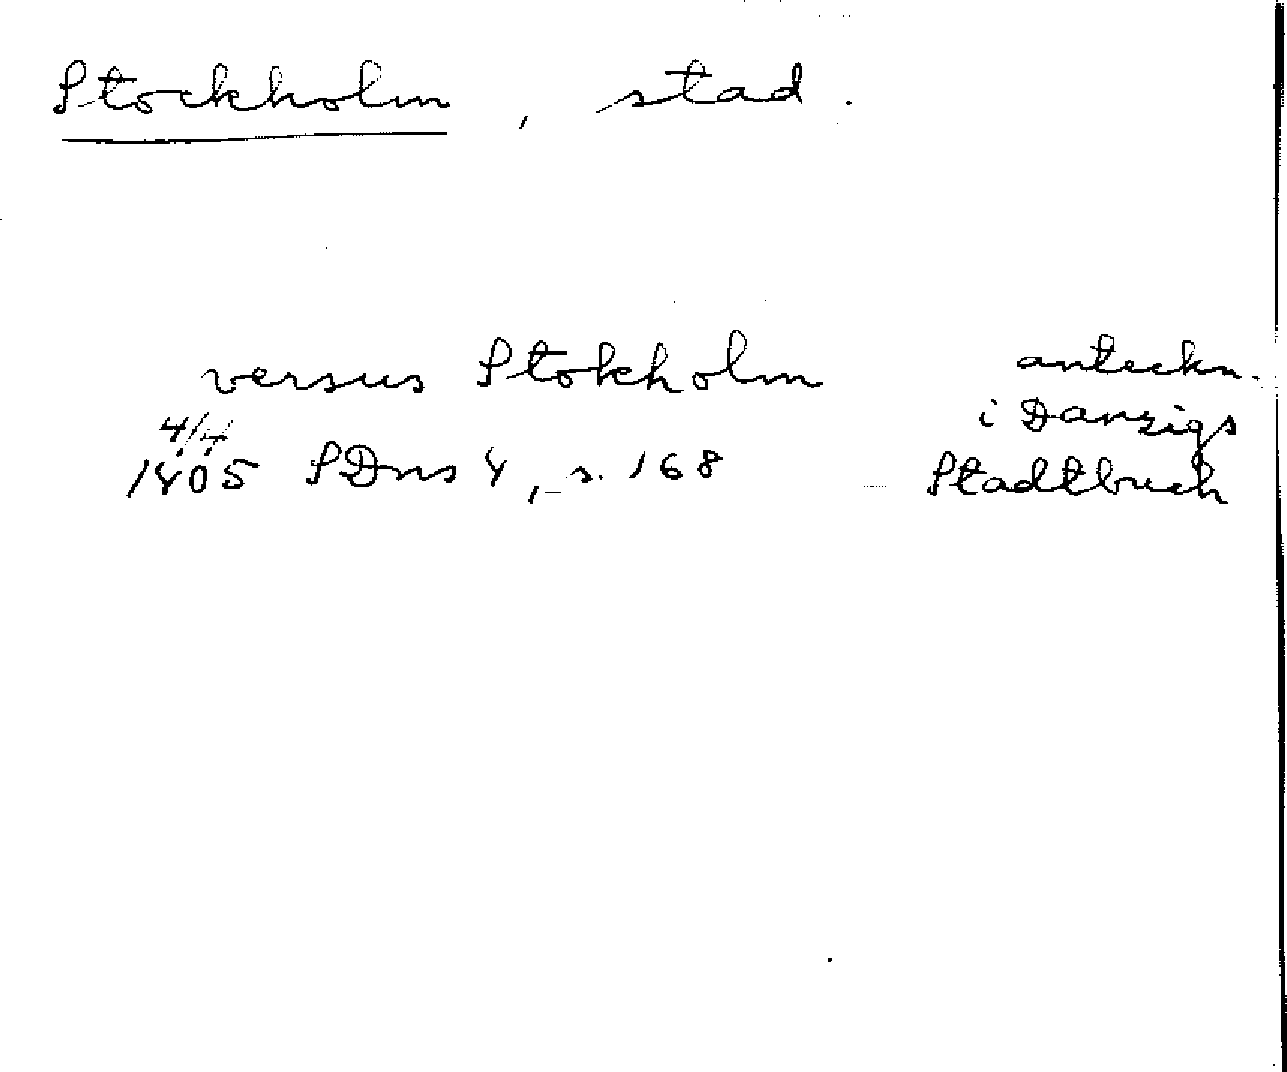 Stockholm, stad.
versus Stokholm
4/4
1405 SDns 4, s. 168
anteckn.
i Danzigs
Stadtbuch